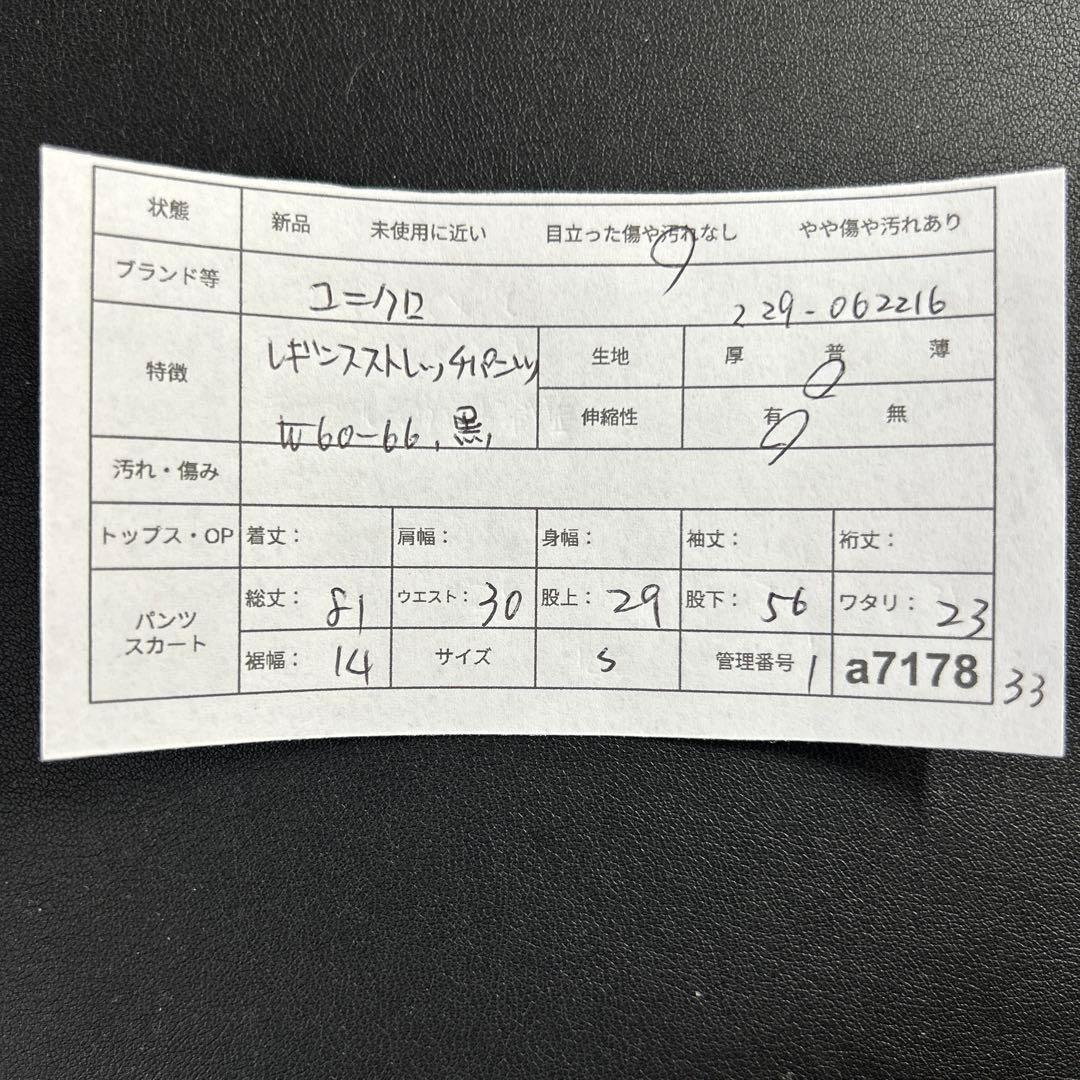 状態 新品 未使用に近い 目立った傷や汚れなし やや傷や汚れあり
ブランド等 ユニクロ 229-062216
特徴 レギンスストレッチパンツ 生地 厚 普 薄
W60-66、黒、 伸縮性 有 無
汚れ・傷み
トップス・OP 着丈： 肩幅： 身幅： 袖丈： 裄丈：
パンツ スカート 総丈： 81 ウエスト： 30 股上： 29 股下： 56 ワタリ： 23
裾幅： 14 サイズ S 管理番号 1 a7178 33